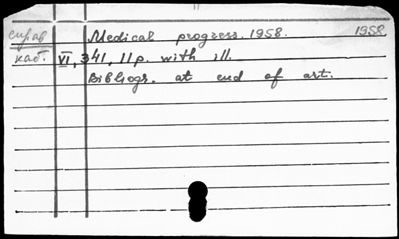 справ Medical progress. 1958. 1958
каб. VI, 341, 11p. with ill.
Bibliogr. at end of art.